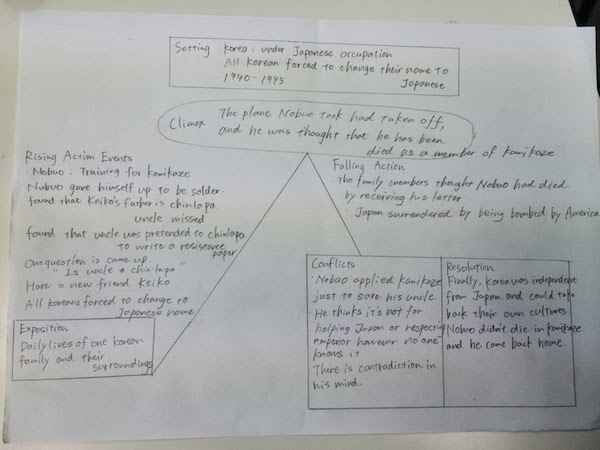 Setting · Korea : under Japanese occupation
· All Korean forced to change their name to
Japanese
· 1940-1945
Climax The plane Nobuo took had taken off,
and he was thought that he has been
died as a member of kamikaze
Rising Action Events
· Nobuo : Training for kamikaze
Nobuo gave himself up to be solder.
found that Keiko's father is chinlapa
uncle missed
found that uncle was pretended to chinlapa
to write a resistance
paper
One question is came up.
"Is uncle a chinlapa"
Have a new friend Keiko
All koreans forced to change to
Japanese name
Exposition
Daily lives of one korean
family and their
surroundings
Falling Action
· The family members thought Nobuo had died
by receiving his letter
· Japan surrendered by being bombed by America
Conflicts
· Nobuo applied kamikaze
just to save his uncle.
· He thinks it's not for
helping Japan or respecting
emperor however no one
knows it
There is contradiction in
his mind.
Resolution
Finally, Korea was independent
from Japan and could take
back their own cultures
Nobuo didn't die in kamikaze
and he come back home.